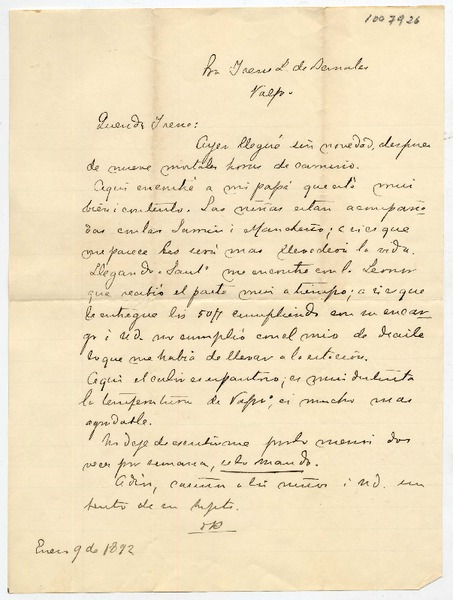 1007926
Sra Irene L. de Bernales
Valpo.
Querida Irene:
Ayer llegué sin novedad, despues
de nueve mortales horas de camino.
Aqui encontré a mi papá que está mui
bien i contento. Las niñas estan acompaña
das con las i ; asi es que
me parece les será mas llevadera la vida.
Llegando a Santo me encontré con la Leonor
que recibió el parte mui a tiempo; asi es que
le entregué los 50/ cumpliendo con su encar
go i Ud. no cumplió con el mio de decirle
lo que me habia de llevar a la estacion.
Aqui el calor es espantoso; es mui distinta
la temperatura de Valpo, es mucho mas
agradable.
No deje de escribirme por lo menos dos
veces por semana, se lo mando.
Adios, cariños a los niños i Ud. un
de su
Enero 9 de 1892